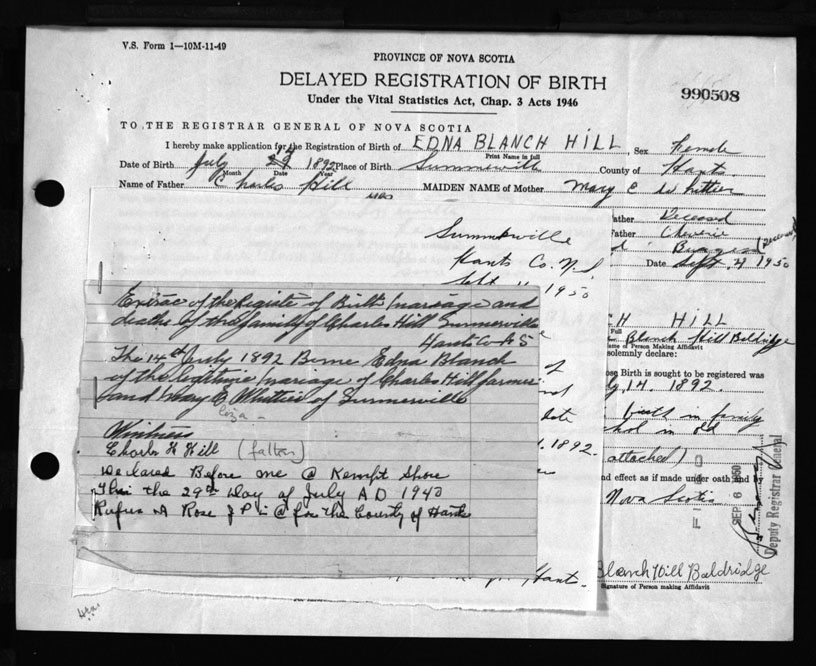 V.S. Form 1—10M-11-49
PROVINCE OF NOVA SCOTIA
DELAYED REGISTRATION OF BIRTH
990508
Under the Vital Statistics Act, Chap. 3 Acts 1946
TO THE REGISTRAR GENERAL OF NOVA SCOTIA
I hereby make application for the Registration of Birth of EDNA BLANCH HILL, Sex Female
Print Name in full
Date of Birth July 1892 Place of Birth Summerville County of Hants
Month Date Year
Name of Father Charles Hill MAIDEN NAME of Mother Mary E Whittier
ather Deceased
Summerville
ather Cheverie
Hants Co. N.S
d Burgess
Date Sept. 4 1950
1950
Extrac of the Registe of Birth mariage and
deaths of the family of Charles Hill Summerville
Hants Co N S
CH HILL
Full
Blanch Hill Baldridge
me of Person Making Affidavit
solemnly declare:
The 14th July 1892 Borne Edna Blanch
ose Birth is sought to be registered was
of the legitimie mariage of Charles Hill farmer
of
ly 14. 1892.
and Mary E Whitier of Summerville
liza
date
birth in family
in old
Wintness
Charls H Hill (father)
1892.
attached)
Declared Before me @ Kempt Shore
nd effect as if made under oath and by
This the 29th Day of July A D 1940
Nova Scotia
Rufus A Rose J P in @ for the County of Hants
SEP 6 1950
Deputy Registrar General
Hants.
Blanch Hill Baldridge
Signature of Person making Affidavit